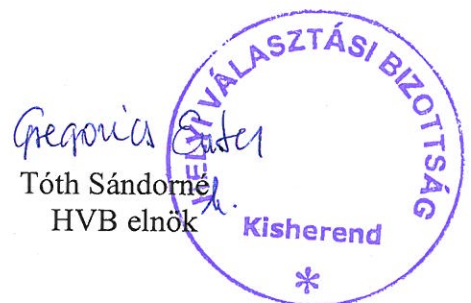 Gregorics Eszter
Tóth Sándorné
h.
HVB elnök
HELYI VÁLASZTÁSI BIZOTTSÁG
Kisherend
*